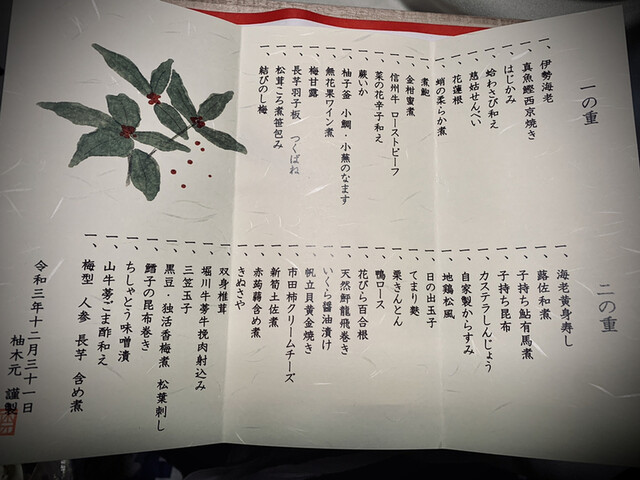 一の重
一、伊勢海老
一、真魚鰹西京焼き
一、はじかみ
一、蛤わさび和え
一、慈姑せんべい
一、花蓮根
一、蛸の柔らか煮
一、煮鮑
一、金柑蜜煮
一、信州牛 ローストビーフ
一、菜の花辛子和え
一、蕨いか
一、柚子釜 小鯛・小蕪のなます
一、無花果ワイン煮
一、梅甘露
一、長芋羽子板 つくばね
一、松茸ころ煮笹包み
一、結びのし梅
二の重
一、海老黄身寿し
一、蕗佐和煮
一、子持ち鮎有馬煮
一、子持ち昆布
一、カステラしんじょう
一、自家製からすみ
一、地鶏松風
一、日の出玉子
一、てまり麩
一、栗きんとん
一、鴨ロース
一、花びら百合根
一、天然鮃龍飛巻き
一、いくら醤油漬け
一、帆立貝黄金焼き
一、市田柿クリームチーズ
一、新筍土佐煮
一、赤蒟蒻含め煮
一、きぬさや
一、双身椎茸
一、堀川牛蒡牛挽肉射込み
一、三笠玉子
一、黒豆・独活香梅煮 松葉刺し
一、鱈子の昆布巻き
一、ちしゃとう味噌漬
一、山牛蒡ごま酢和え
一、梅型 人参 長芋 含め煮
令和三年十二月三十一日
柚木元 謹製